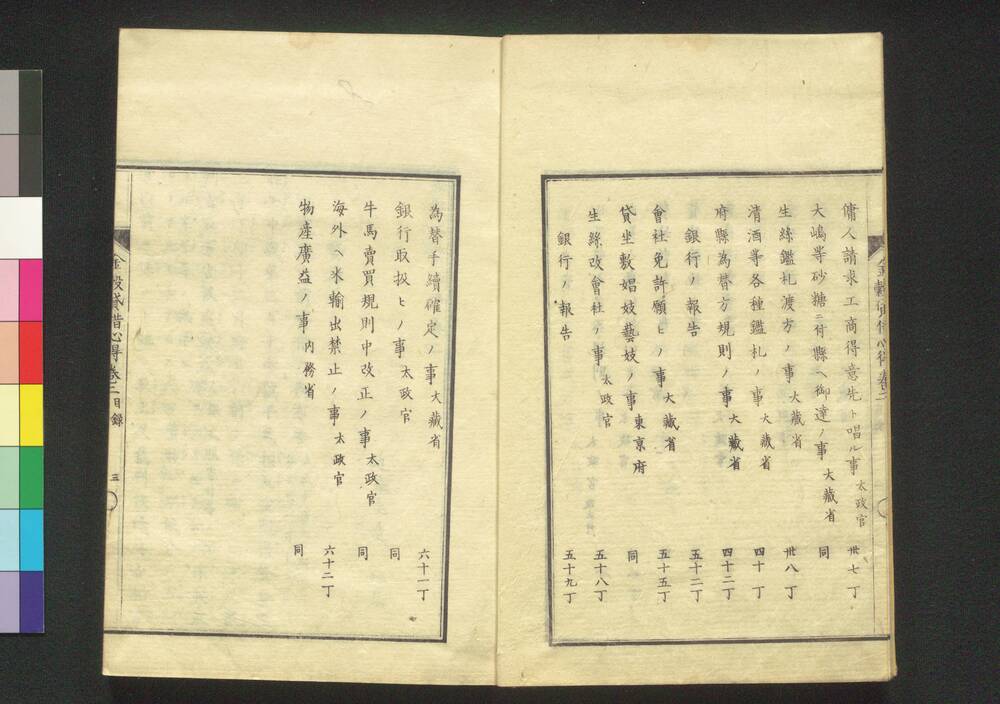 傭人請求工商得意先ト唱ル事 太政官 卅七丁
大嶋等砂糖ニ付縣ヘ御達ノ事 大藏省 同
生絲鑑札渡方ノ事 大藏省 卅八丁
清酒等各種鑑札ノ事 大藏省 四十丁
府縣為替方規則ノ事 大藏省 四十二丁
銀行ノ報告 五十二丁
會社免許願ヒノ事 大藏省 五十五丁
貸坐敷娼妓藝妓ノ事 東京府 同
生絲改會社ノ事 太政官 五十八丁
銀行ノ報告 五十九丁
為替手續確定ノ事 大藏省 六十一丁
銀行取扱ヒノ事 太政官 同
牛馬賣買規則中改正ノ事 太政官 同
海外ヘ米輸出禁止ノ事 太政官 六十二丁
物産廣益ノ事 内務省 同
金穀貸借心得卷三目録 三